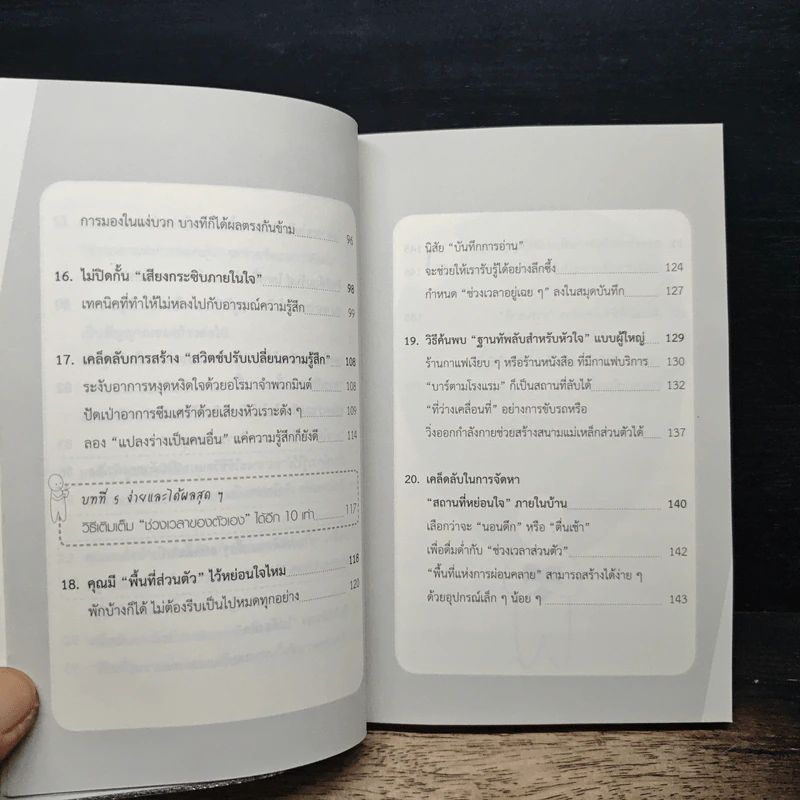 การมองในแง่บวก บางทีก็ได้ผลตรงกันข้าม 96
16. ไม่ปิดกั้น “เสียงกระซิบภายในใจ” 98
เทคนิคที่ทำให้ไม่หลงไปกับอารมณ์ความรู้สึก 99
17. เคล็ดลับการสร้าง “สวิตช์ปรับเปลี่ยนความรู้สึก” 108
ระงับอาการหงุดหงิดใจด้วยอโรมาจำพวกมินต์ 108
ปัดเป่าอาการซึมเศร้าด้วยเสียงหัวเราะดัง ๆ 109
ลอง “แปลงร่างเป็นคนอื่น” แค่ความรู้สึกก็ยังดี 114
บทที่ 5 ง่ายและได้ผลสุด ๆ
วิธีเติมเต็ม “ช่วงเวลาของตัวเอง” ได้อีก 10 เท่า 117
18. คุณมี “พื้นที่ส่วนตัว” ไว้หย่อนใจไหม 118
พักบ้างก็ได้ ไม่ต้องรีบเป็นไปหมดทุกอย่าง 120
นิสัย “บันทึกการอ่าน”
จะช่วยให้เรารับรู้ได้อย่างลึกซึ้ง 124
กำหนด “ช่วงเวลาอยู่เฉย ๆ” ลงในสมุดบันทึก 127
19. วิธีค้นพบ “ฐานทัพลับสำหรับหัวใจ” แบบผู้ใหญ่ 129
ร้านกาแฟเงียบ ๆ หรือร้านหนังสือ ที่มีกาแฟบริการ 130
“บาร์ตามโรงแรม” ก็เป็นสถานที่ลับได้ 132
“ที่ว่างเคลื่อนที่” อย่างการขับรถหรือ
วิ่งออกกำลังกายช่วยสร้างสนามแม่เหล็กส่วนตัวได้ 137
20. เคล็ดลับในการจัดหา
“สถานที่หย่อนใจ” ภายในบ้าน 140
เลือกว่าจะ “นอนดึก” หรือ “ตื่นเช้า”
เพื่อดื่มด่ำกับ “ช่วงเวลาส่วนตัว” 142
“พื้นที่แห่งการผ่อนคลาย” สามารถสร้างได้ง่าย ๆ
ด้วยอุปกรณ์เล็ก ๆ น้อย ๆ 143